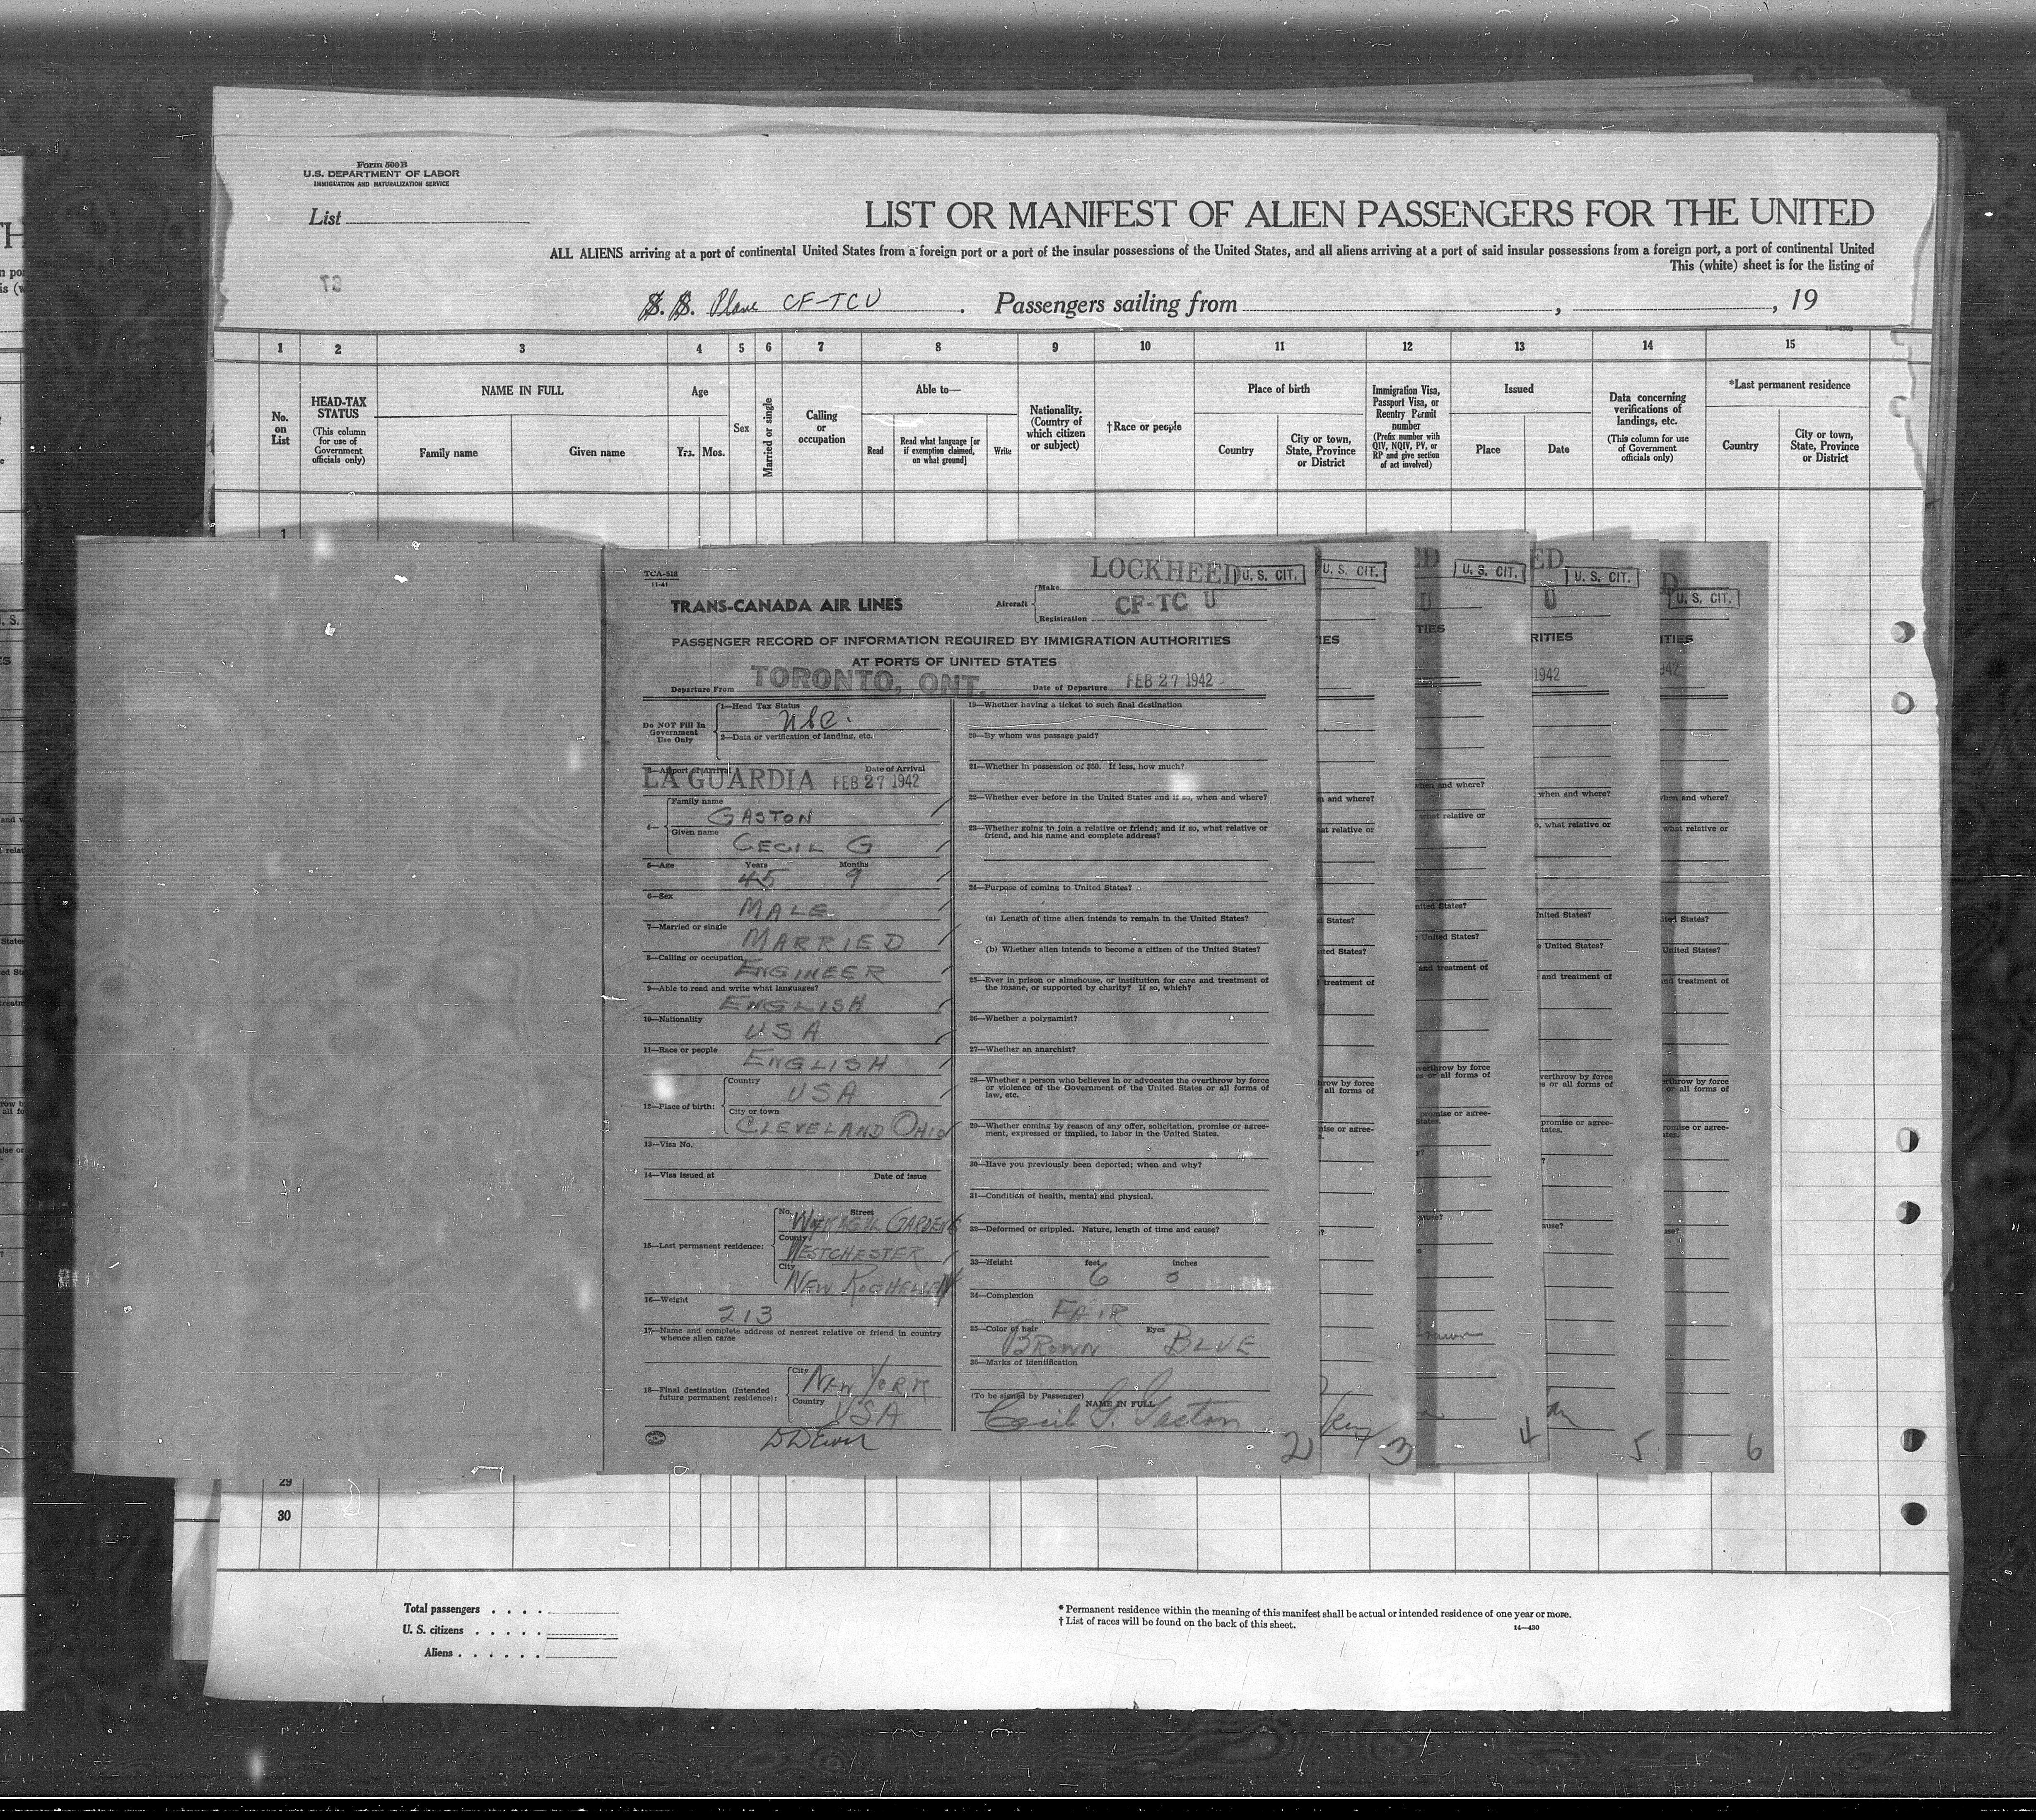 Form 500 B
U.S. DEPARTMENT OF LABOR
IMMIGRATION AND NATURALIZATION SERVICE
List
LIST OR MANIFEST OF ALIEN PASSENGERS FOR THE UNITED
ALL ALIENS arriving at a port of continental United States from a foreign port or a port of the insular possessions of the United States, and all aliens arriving at a port of said insular possessions from a foreign port, a port of continental United
This (white) sheet is for the listing of
S. S. Plane CF-TCU . Passengers sailing from , , 19
1 2 3 4 5 6 7 8 9 10 11 12 13 14 15
No. on List
HEAD-TAX STATUS
(This column for use of Government officials only)
NAME IN FULL
Family name Given name
Age
Yrs. Mos.
Sex
Married or single
Calling or occupation
Able to—
Read
Read what language [or if exemption claimed, on what ground]
Write
Nationality. (Country of which citizen or subject)
†Race or people
Place of birth
Country
City or town, State, Province or District
Immigration Visa, Passport Visa, or Reentry Permit number
(Prefix number with QIV, NQIV, PV, or RP and give section of act involved)
Issued
Place Date
Data concerning verifications of landings, etc.
(This column for use of Government officials only)
*Last permanent residence
Country
City or town, State, Province or District
1
TCA-518
11-41
TRANS-CANADA AIR LINES
Aircraft
Make LOCKHEED
U. S. CIT.
U. S. CIT.
U. S. CIT.
U. S. CIT.
U. S. CIT.
Registration CF-TC U
PASSENGER RECORD OF INFORMATION REQUIRED BY IMMIGRATION AUTHORITIES
AT PORTS OF UNITED STATES
Departure From TORONTO, ONT. Date of Departure FEB 27 1942
Do NOT Fill In Government Use Only
1—Head Tax Status
USC.
2—Data or verification of landing, etc.
3—Airport of Arrival Date of Arrival
LA GUARDIA FEB 27 1942
4—
Family name
GASTON
Given name
CECIL G
5—Age Years Months
45 9
6—Sex
MALE
7—Married or single
MARRIED
8—Calling or occupation
ENGINEER
9—Able to read and write what languages?
ENGLISH
10—Nationality
USA
11—Race or people
ENGLISH
12—Place of birth:
Country
USA
City or town
CLEVELAND OHIO
13—Visa No.
14—Visa issued at Date of issue
15—Last permanent residence:
No. Street
WYKAGYL GARDENS
County
WESTCHESTER
City
NEW ROCHELLE
16—Weight
213
17—Name and complete address of nearest relative or friend in country
whence alien came
18—Final destination (Intended
future permanent residence):
City
NEW YORK
Country
USA
19—Whether having a ticket to such final destination
20—By whom was passage paid?
21—Whether in possession of $50. If less, how much?
22—Whether ever before in the United States and if so, when and where?
23—Whether going to join a relative or friend; and if so, what relative or
friend, and his name and complete address?
24—Purpose of coming to United States?
(a) Length of time alien intends to remain in the United States?
(b) Whether alien intends to become a citizen of the United States?
25—Ever in prison or almshouse, or institution for care and treatment of
the insane, or supported by charity? If so, which?
26—Whether a polygamist?
27—Whether an anarchist?
28—Whether a person who believes in or advocates the overthrow by force
or violence of the Government of the United States or all forms of
law, etc.
29—Whether coming by reason of any offer, solicitation, promise or agree-
ment, expressed or implied, to labor in the United States.
30—Have you previously been deported; when and why?
31—Condition of health, mental and physical.
32—Deformed or crippled. Nature, length of time and cause?
33—Height feet inches
6 0
34—Complexion
FAIR
35—Color of hair Eyes
BROWN BLUE
36—Marks of identification
(To be signed by Passenger) NAME IN FULL
Cecil G. Gaston
2 3 4 5 6
29
30
Total passengers . . . .
U. S. citizens . . . . .
Aliens . . . . . .
* Permanent residence within the meaning of this manifest shall be actual or intended residence of one year or more.
† List of races will be found on the back of this sheet.
14—430